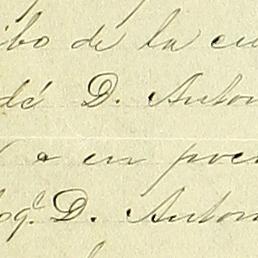 ibo de la cu
dé D. Anton
a en poce
oqe. D. Anton